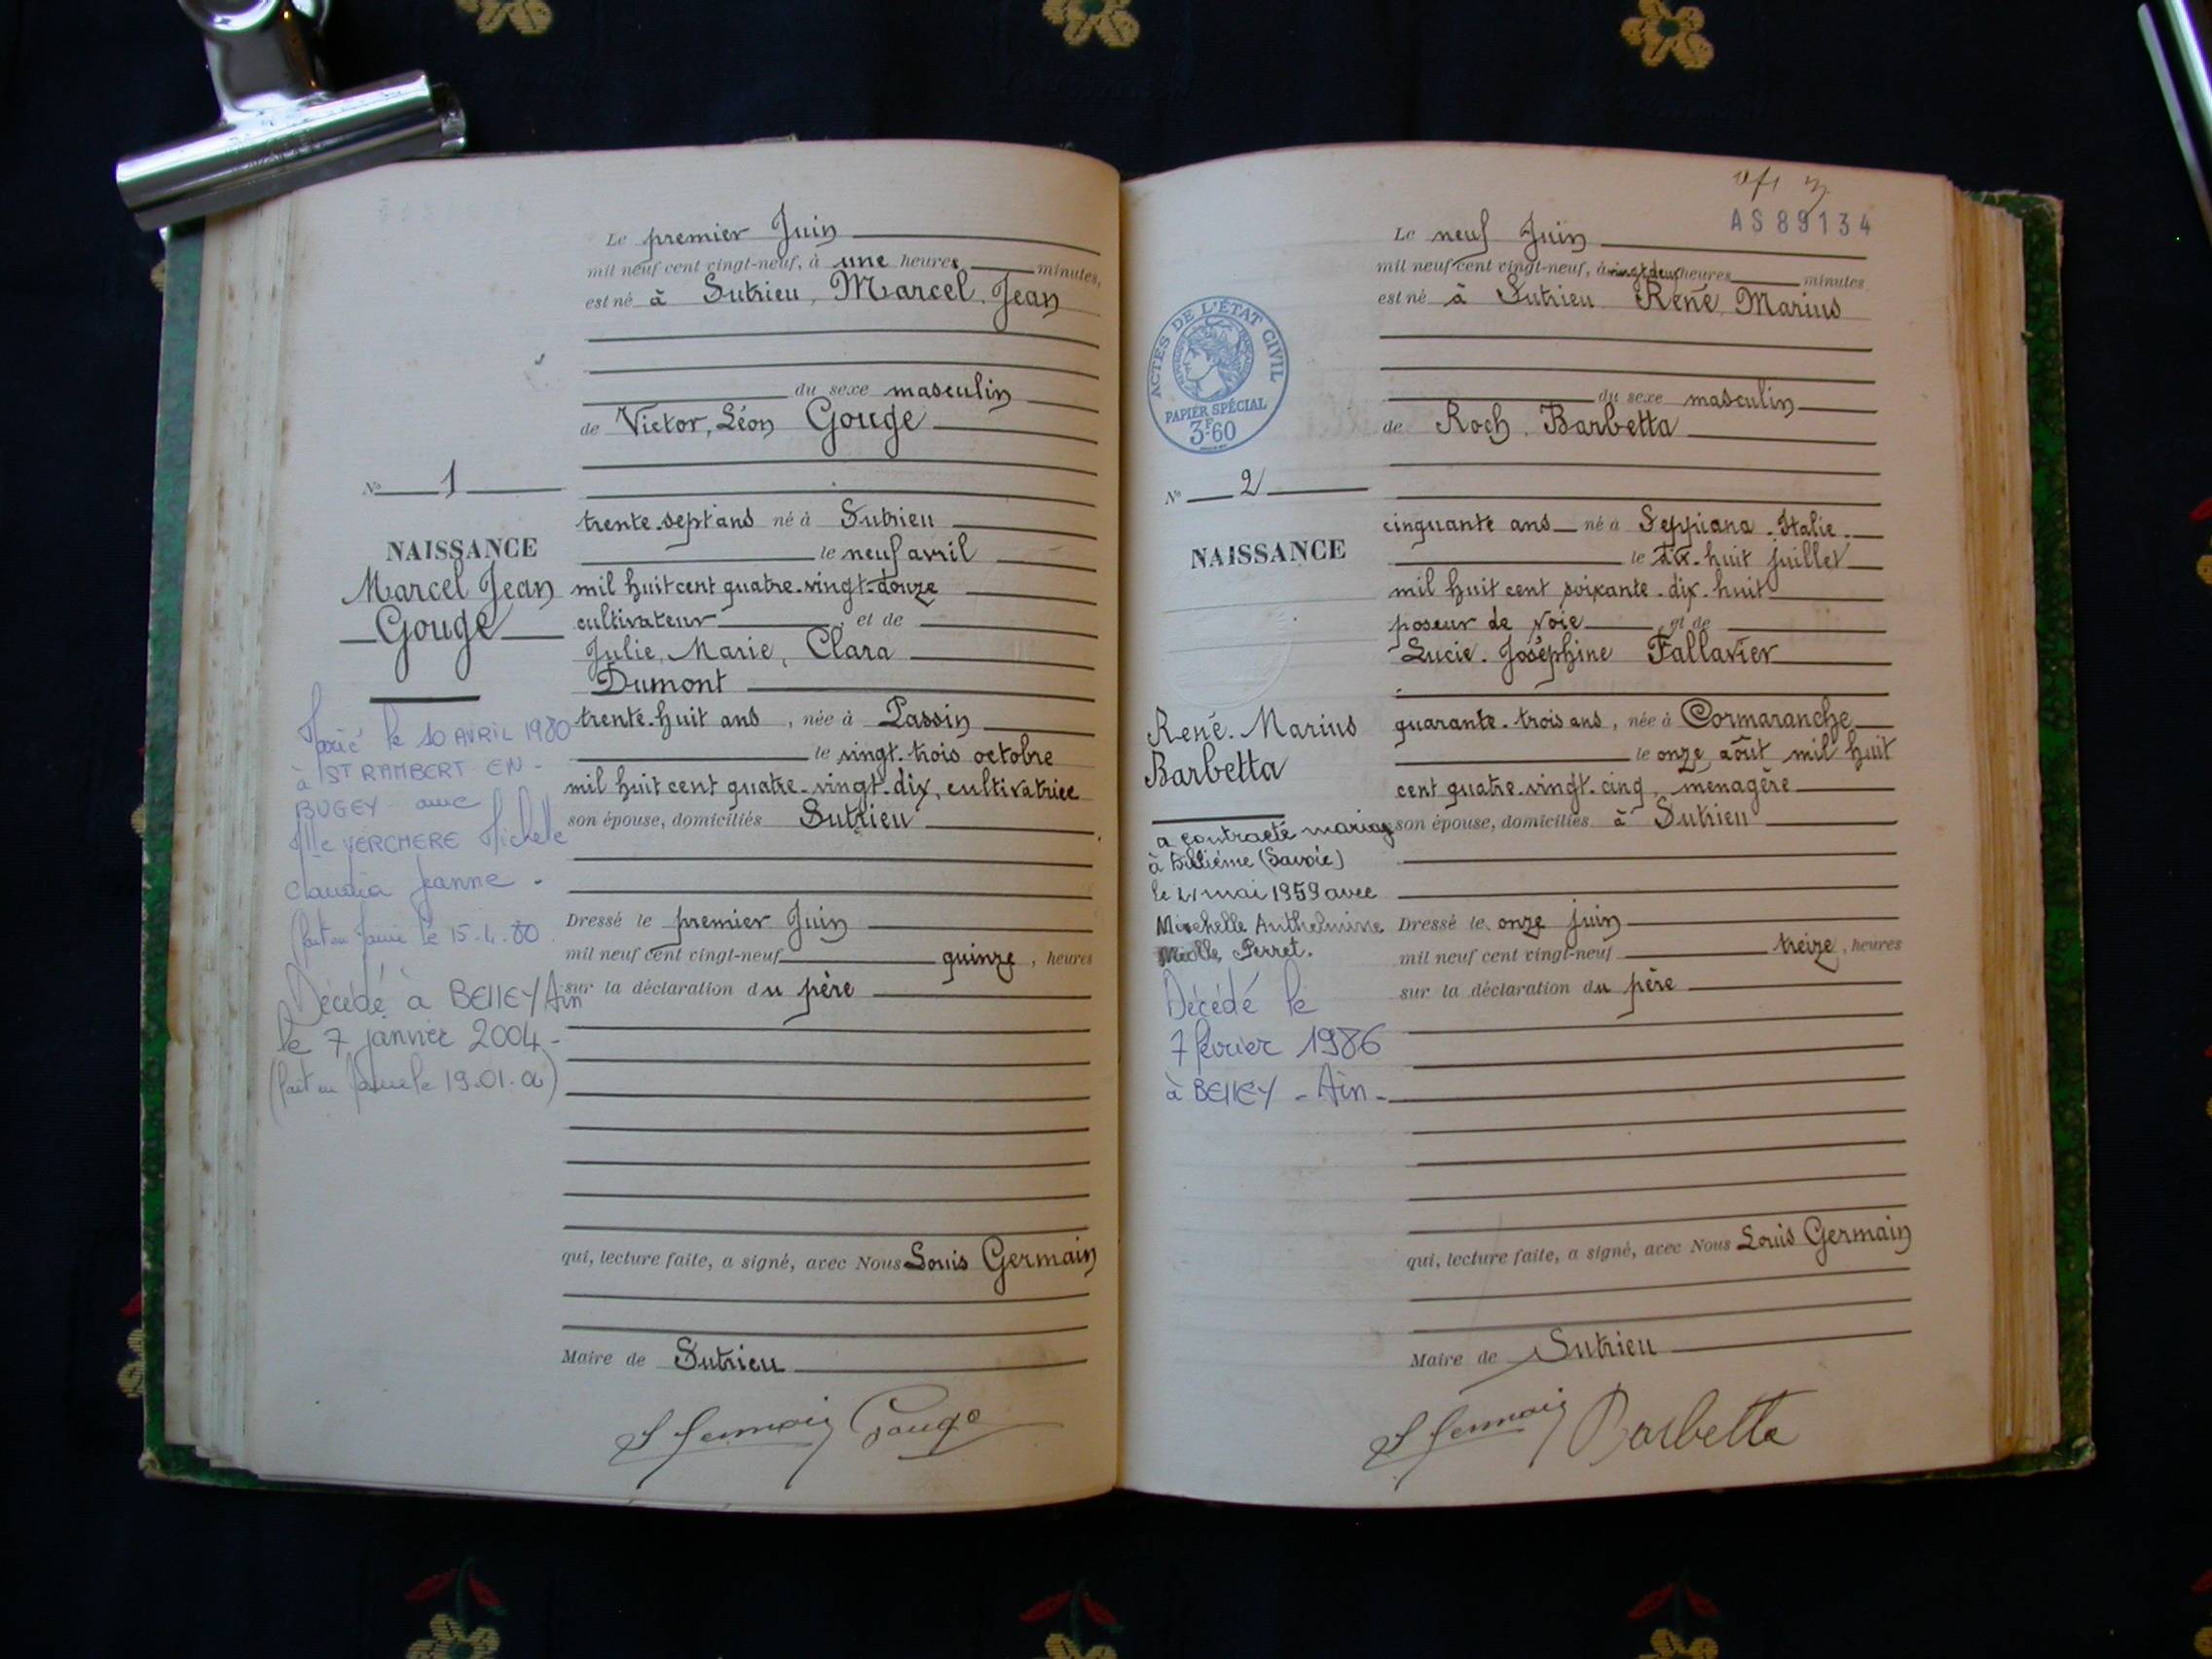 Le premier Juin
mil neuf cent vingt-neuf, à une heures minutes,
est né à Sutrieu, Marcel, Jean
du sexe masculin
de Victor, Léon Gouge
N° 1
trente-sept ans né à Sutrieu
NAISSANCE
le neuf avril
Marcel Jean
mil huit cent quatre-vingt-douze
Gouge
cultivateur et de
Julie, Marie, Clara
Dumont
trente-huit ans, née à Passin
le vingt-trois octobre
mil huit cent quatre-vingt-dix, cultivatrice
son épouse, domiciliés Sutrieu
Marié le 10 AVRIL 1980
à ST RAMBERT EN-
BUGEY avec
Mlle VERCHERE Michelle
Claudia Jeanne.
le 15.4.80
Décédé à BELLEY Ain
le 7 janvier 2004-
le 19.01.04)
Dressé le premier Juin
mil neuf cent vingt-neuf quinze, heures
sur la déclaration du père
qui, lecture faite, a signé, avec Nous Louis Germain
Maire de Sutrieu
L Germain Gouge
AS 89134
Le neuf Juin
mil neuf cent vingt-neuf, à vingt deux heures minutes
est né à Sutrieu René, Marius
ACTES DE L'ÉTAT CIVIL
PAPIER SPÉCIAL
3F60
du sexe masculin
de Roch. Barbetta
N° 2
cinquante ans né à Seppiana. Italie.
NAISSANCE
le dix-huit juillet
mil huit cent soixante-dix-huit
poseur de voie et de
Lucie. Joséphine Fallavier
René. Marius
Barbetta
quarante-trois ans, née à Cormaranche
le onze août mil huit
cent quatre-vingt-cinq, ménagère
son épouse, domiciliés à Sutrieu
a contracté mariage
à Billième (Savoie)
le mai 1959 avec
Michelle Anthelmine
Perret.
Décédé le
7 février 1986
à BELLEY - Ain -
Dressé le onze juin
mil neuf cent vingt-neuf treize, heures
sur la déclaration du père
qui, lecture faite, a signé, avec Nous Louis Germain
Maire de Sutrieu
L Germain Barbetta